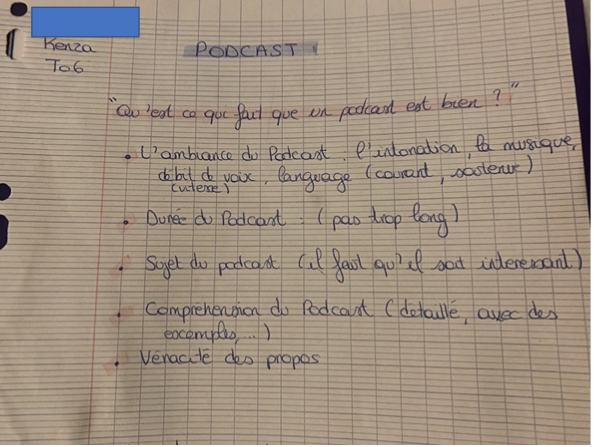 Kenza
TO6
PODCAST
"Qu'est ce qui fait que un podcast est bien ?"
• L'ambiance du Podcast, l'intonation, la musique,
débit de voix, language (courant, soutenue)
(vitesse)
• Durée du Podcast : (pas trop long)
• Sujet du podcast (il faut qu'il soit interessant)
• Comprehension du Podcast (detaillé, avec des
excemples, ...)
• Veracité des propos